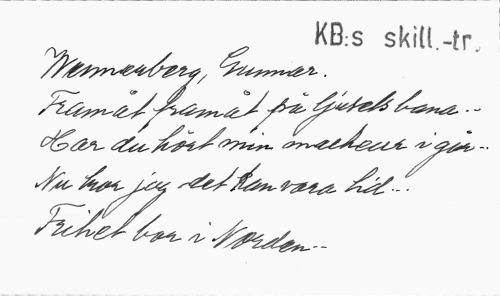 KB:s skill.-tr.
Wennerberg, Gunnar.
Framåt framåt på ljusets bana...
Har du hört min maskeur i går...
Nu tror jag det kan vara tid...
Frihet bor i Norden...